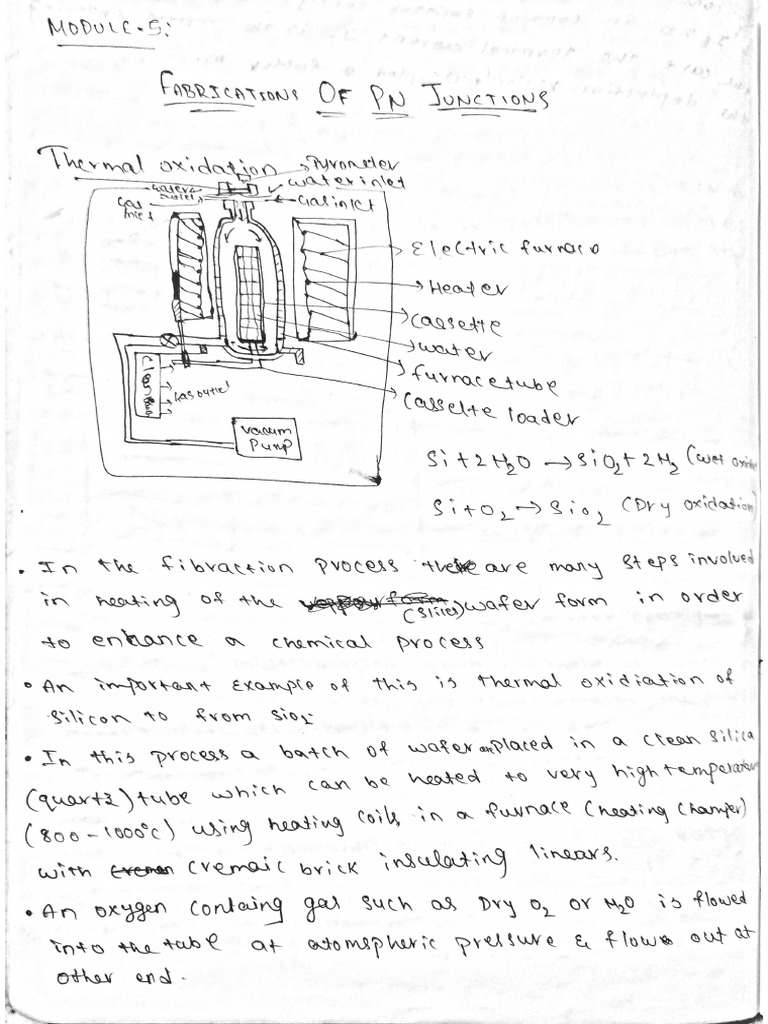 MODULE-5:
FABRICATIONS OF PN JUNCTIONS
Thermal oxidation
Pyrometer
water inlet
Gas inlet
Gas inlet
Electric furnace
Heater
Cassette
water
furnace tube
Cassette loader
Clean
Gas outlet
Vacuum
Pump
Si + 2H2O → SiO2 + 2H2 (wet
Si + O2 → SiO2 (Dry oxidation)
• In the fibraction process there are many steps involved
in heating of the (slices) wafer form in order
to enhance a chemical process
• An important example of this is thermal oxidiation of
silicon to from SiO2.
• In this process a batch of wafer are placed in a clean silica
(quartz) tube which can be heated to very high temperature
(800-1000°C) using heating coils in a furnace (heating champer)
with cremaic brick insulating linears.
• An oxygen containg gas such as Dry O2 or H2O is flowed
into the tube at atomspheric pressure & flows out at
other end.